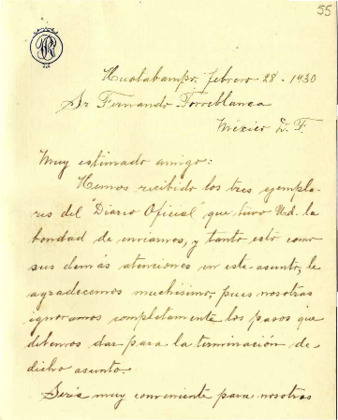 55
Huatabampo, febrero 28 - 1930
Sr Fernando Torreblanca
México D. F.
Muy estimado amigo:
Hemos recibido los tres ejempla-
res del "Diario Oficial" que tuvo Ud. la
bondad de enviarnos, y tanto esto como
sus demás atenciones en este asunto, le
agradecemos muchísimo, pues nosotras
ignoramos completamente los pasos que
debemos dar para la terminación de
dicho asunto.
Sería muy conveniente para nosotras